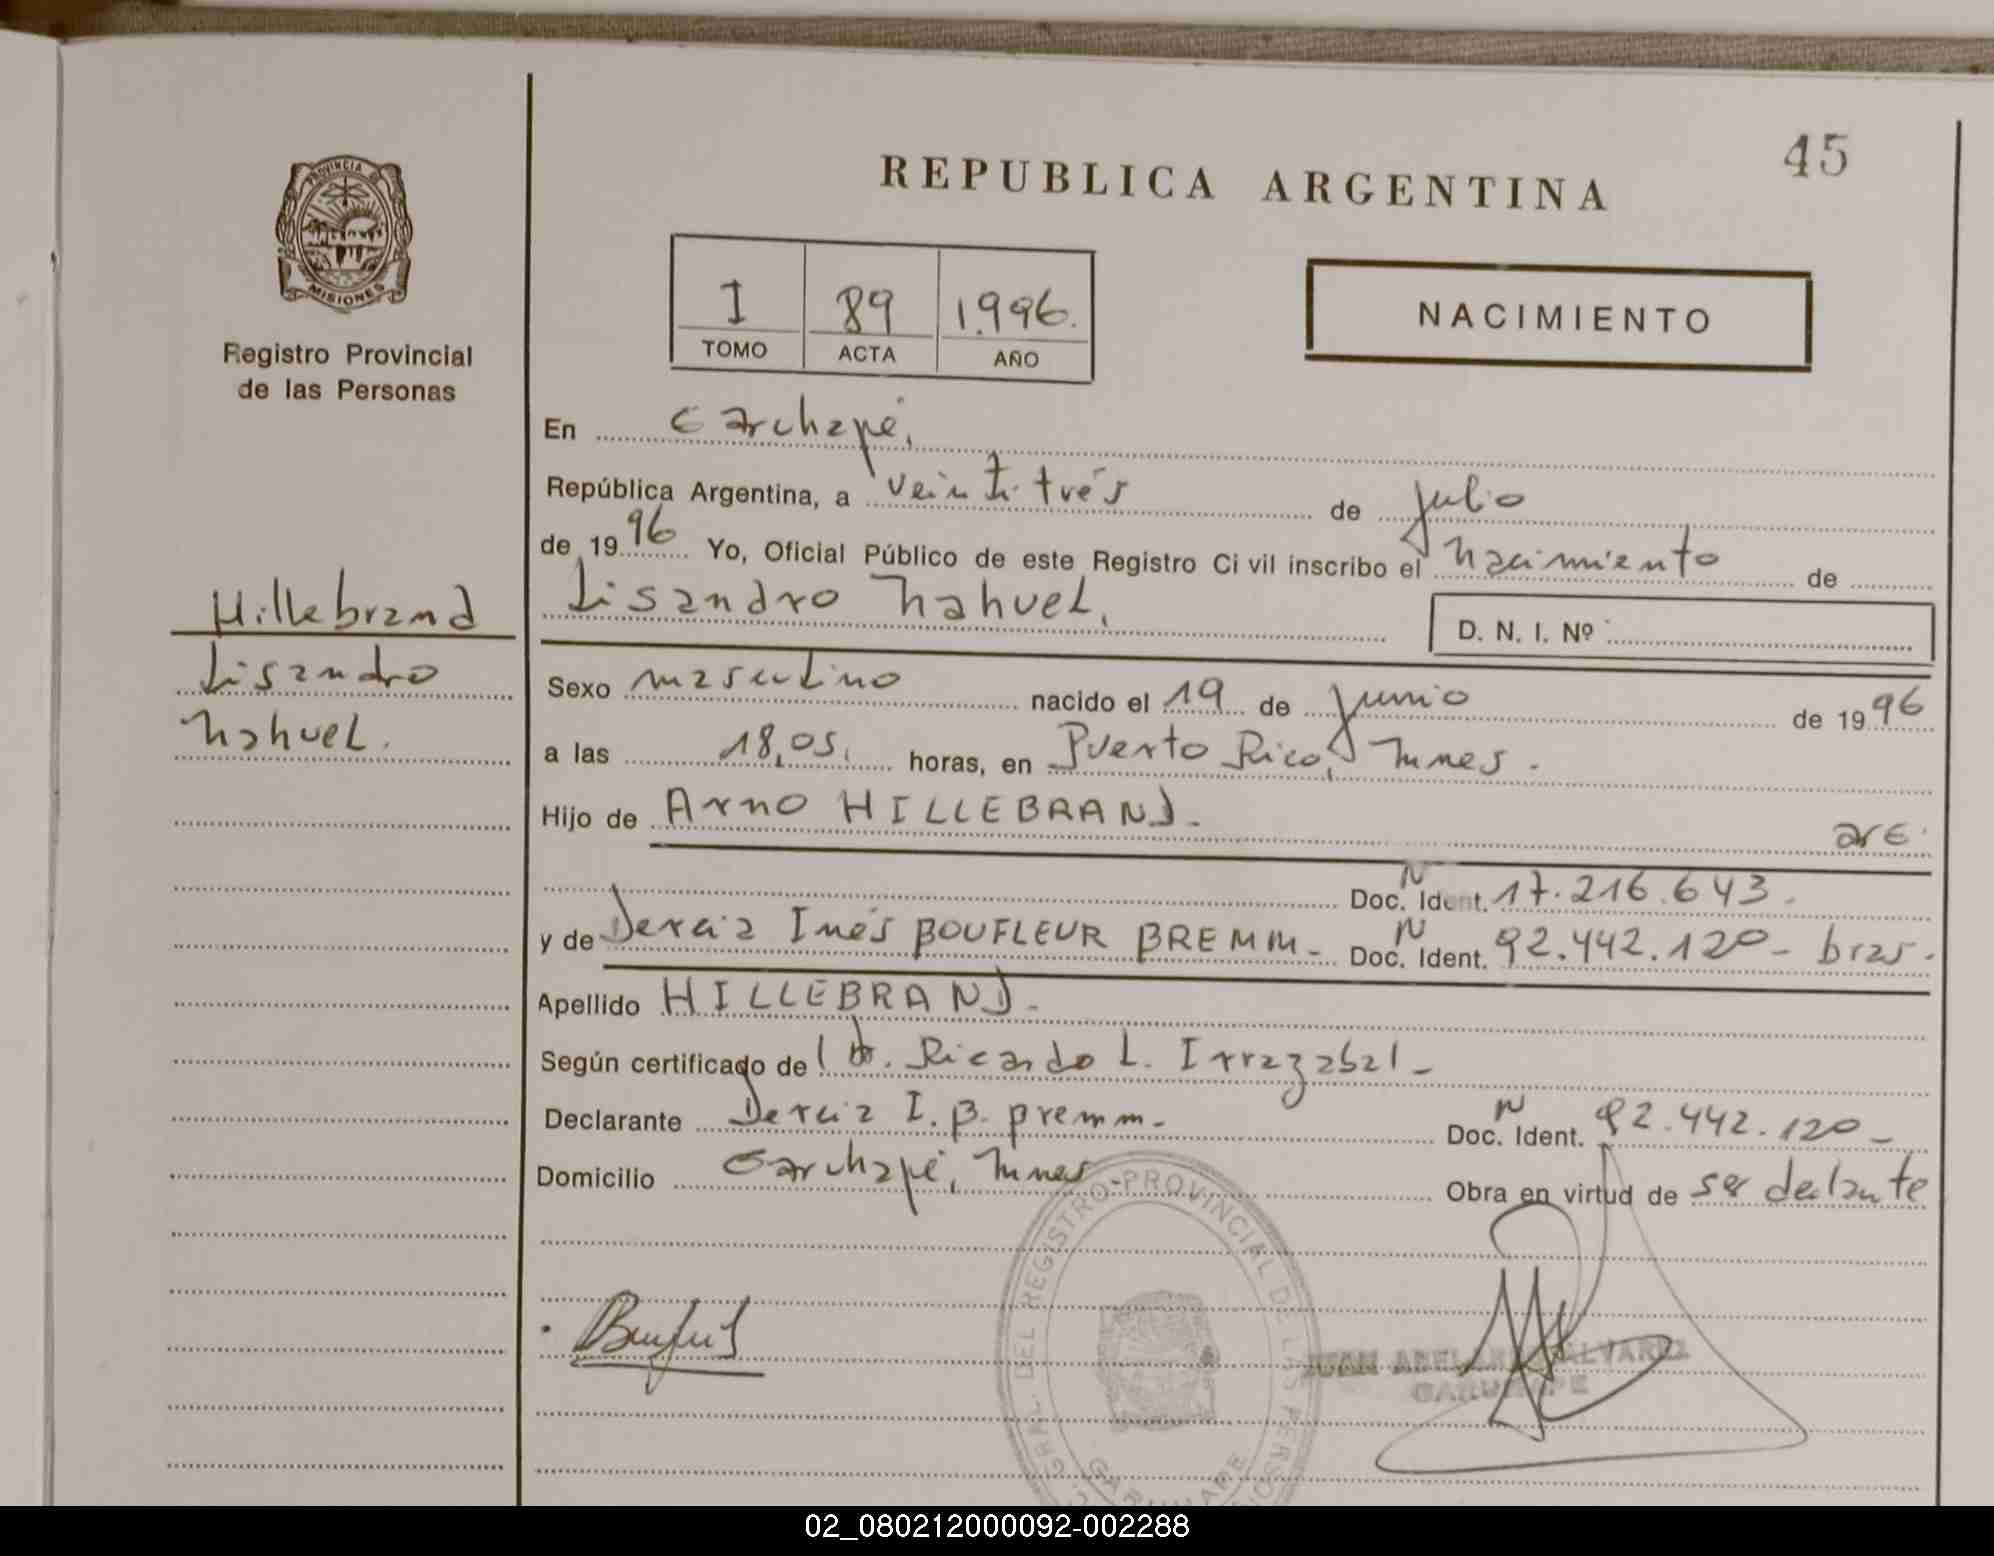 45
REPUBLICA ARGENTINA
PROVINCIA DE
MISIONES
Registro Provincial
de las Personas
I 89 1.996.
TOMO ACTA AÑO
NACIMIENTO
En Garuhapé,
República Argentina, a veintitrés de julio
de 1996 Yo, Oficial Público de este Registro Civil inscribo el nacimiento de
Lisandro Nahuel,
D. N. I. Nº
Hillebrand
Lisandro
Nahuel.
Sexo masculino nacido el 19 de junio de 1996
a las 18,05. horas, en Puerto Rico, Mnes.
Hijo de Arno HILLEBRAND. arg.
Doc. Ident. N 17.216.643.
y de Dercia Inés BOUFLEUR BREMM - Doc. Ident. N 92.442.120 - bras.
Apellido HILLEBRAND.
Según certificado de Dr. Ricardo L. Irrazabal -
Declarante Dercia I. B. Bremm. Doc. Ident. N 92.442.120 -
Domicilio Garuhapé, Mnes Obra en virtud de ser declante
GRAL. DEL REGISTRO PROVINCIAL DE LAS PERSO
GARUHAPE
JUAN ABEL ALVAREZ
GARUHAPE
02_080212000092-002288